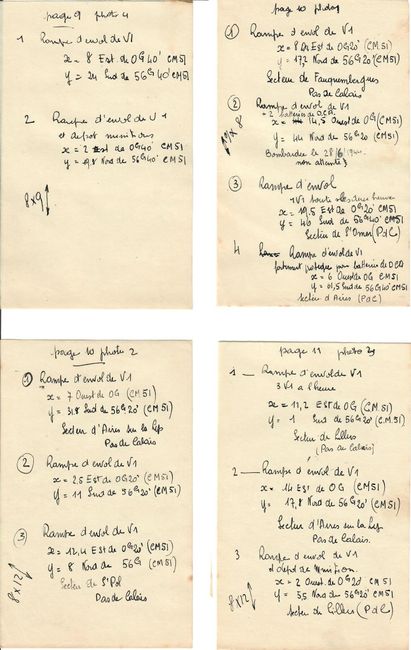 page 9 photo 4
1 Rampe d'envol de V1
x = 8 Est de 0G 40' CM 51
y = 24 Sud de 56G 40' CM 51
2 Rampe d'envol de V1
et depot munitions
x = 2 Est de 0G 40' CM 51)
y = 9,8 Nord de 56G 40' CM 51)
8x9
page 10 photo
① Rampe d'envol de V1
x = Est de 0G 20' (CM 51)
y = 17,2 Nord de 56G 20' (CM 51)
Secteur de Fauquembergues
Pas de Calais
② Rampe d'envol de V1
= 2 batteries de DCA
x = 14,5 Ouest de 0G (CM 51)
y = 44 Nord de 56G 20 (CM 51)
Bombardée le 28/6
non atteinte)
x 8
③ Rampe d'envol
1 V1 toute les deux heures
x = 19,5 Est de 0G 20' (CM 51)
y = 46 Sud de 56G 20' (CM 51)
Secteur de St Omer (PdC)
4 Rampe d'envol de V1
fortement protégée par batteries de DCA
x = 6 Ouest de 0G CM 51)
y = 01,5 Sud de 56G 40' CM 51)
Secteur d'Aires (PdC)
page 10 photo 2
① Rampe d'envol de V1
x = 7 Ouest de 0G (CM 51)
y = 31.8 Sud de 56G 20' (CM 51)
Secteur d'Aires sur la Lys
Pas de Calais
② Rampe d'envol de V1
x = 2.5 Est de 0G 20' (CM 51)
y = 11 Sud de 56G 20' (CM 51)
③ Rampe d'envol de V1
x = 12,4 Est de 0G 20' (CM 51)
y = 8 Nord de 56G (CM 51)
Secteur de St Pol
Pas de Calais
8x12
page 11 photo
1 — Rampe d'envol de V1
3 V1 a l'heure
x = 11,2 Est de 0G (CM 51)
y = 1 Sud de 56G 20' (C.M. 51)
Secteur de Lillers
(Pas de Calais)
2 — Rampe d'envol de V1
x = 14 Est de 0G (CM 51)
y = 17,8 Nord de 56G 20' (CM 51)
Secteur d'Aires sur la Lys
Pas de Calais.
3 Rampe d'envol de V1
et depot de Munition.
x = 2 Ouest de 0G 20' CM 51)
y = 55 Nord de 56G 20' CM 51)
Secteur de Lillers (PdC)
8x12